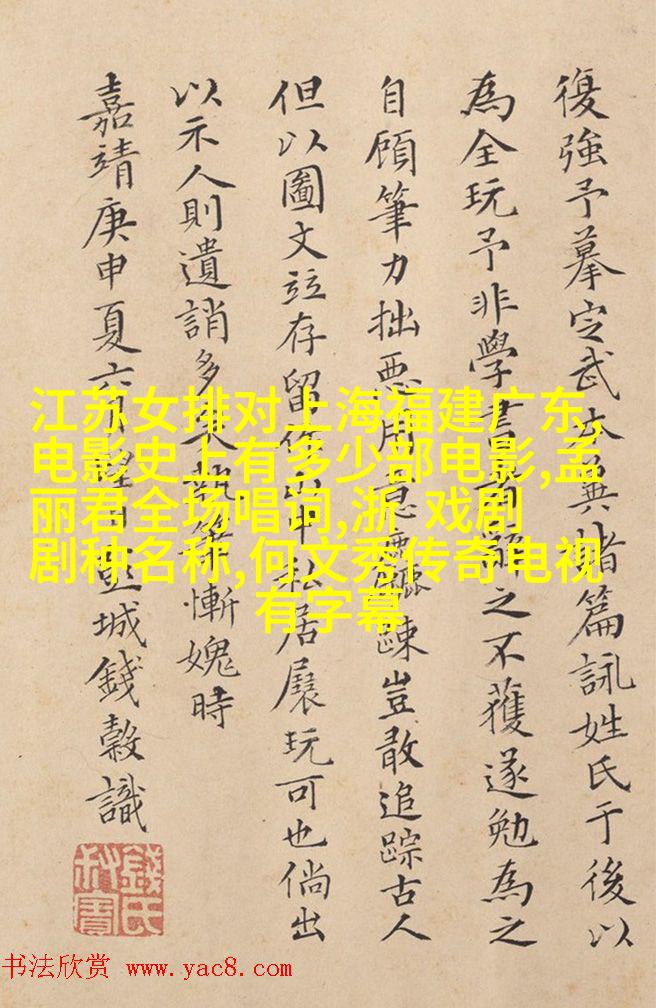 復強予摹定武本兼諸篇詠姓氏于後以
為全玩予非學書者辭之不獲遂勉為之
自顧筆力拙惡用意麤踈豈敢追踪古人
但以圖文竝存留作山中私居展玩可也倘出
以示人則遺誚多矣執筆慚媿時
嘉靖庚申夏六月望日彭城錢穀識
錢氏叔寶
江苏女排对上海福建广东,
电影史上有多少部电影,孟
丽君全场唱词,浙 戏剧
剧种名称,何文秀传奇电视
有字幕
书法欣赏 www.yac8.com